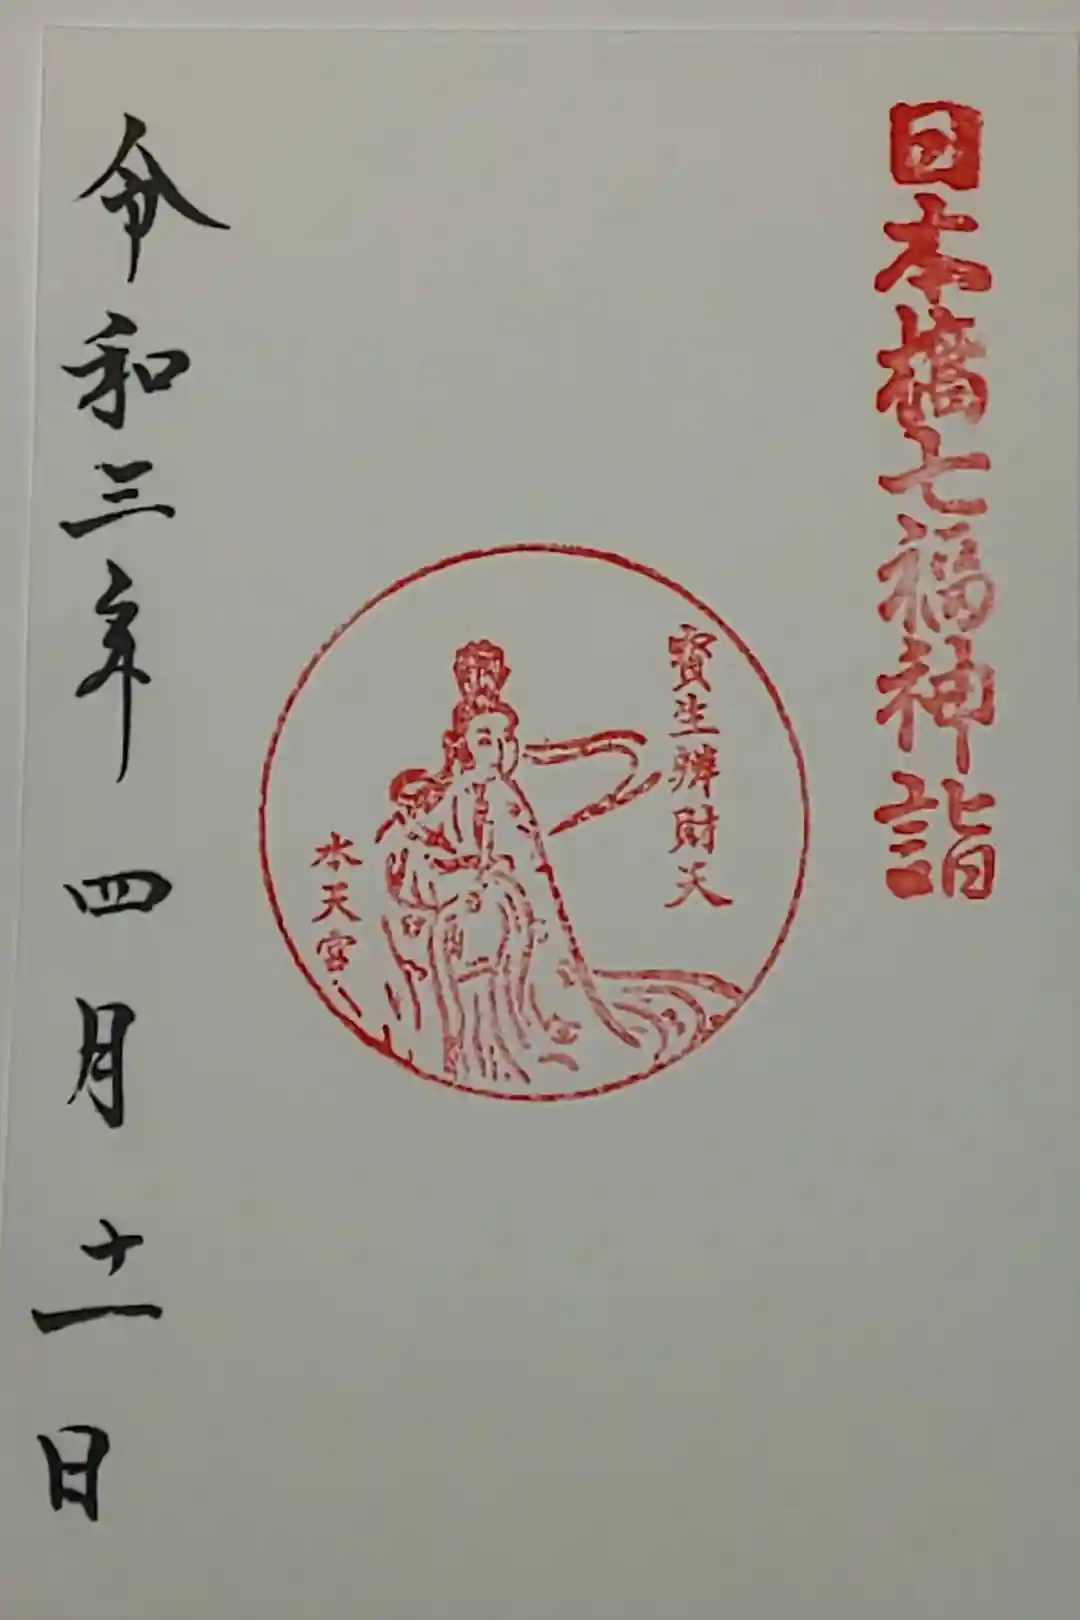 日本橋七福神詣
寳生辨財天
水天宮
令和三年四月十一日